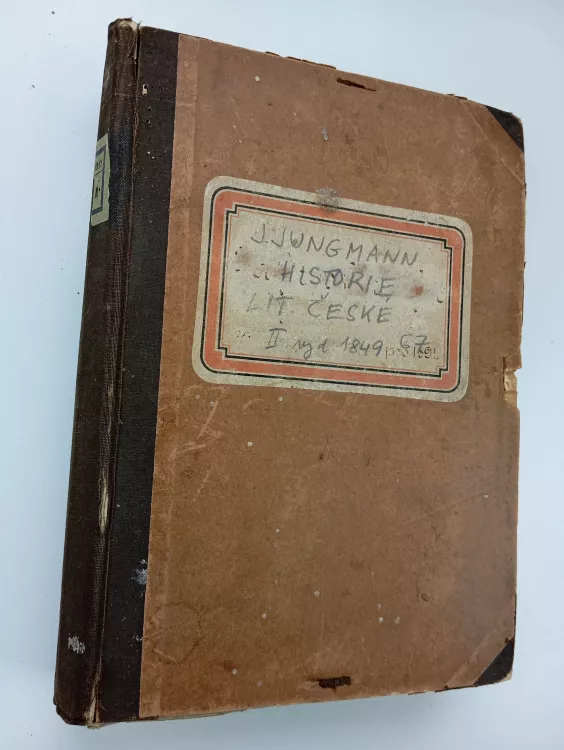 J. JUNGMANN
HISTORIE
LIT ČESKÉ
II vyd 1849